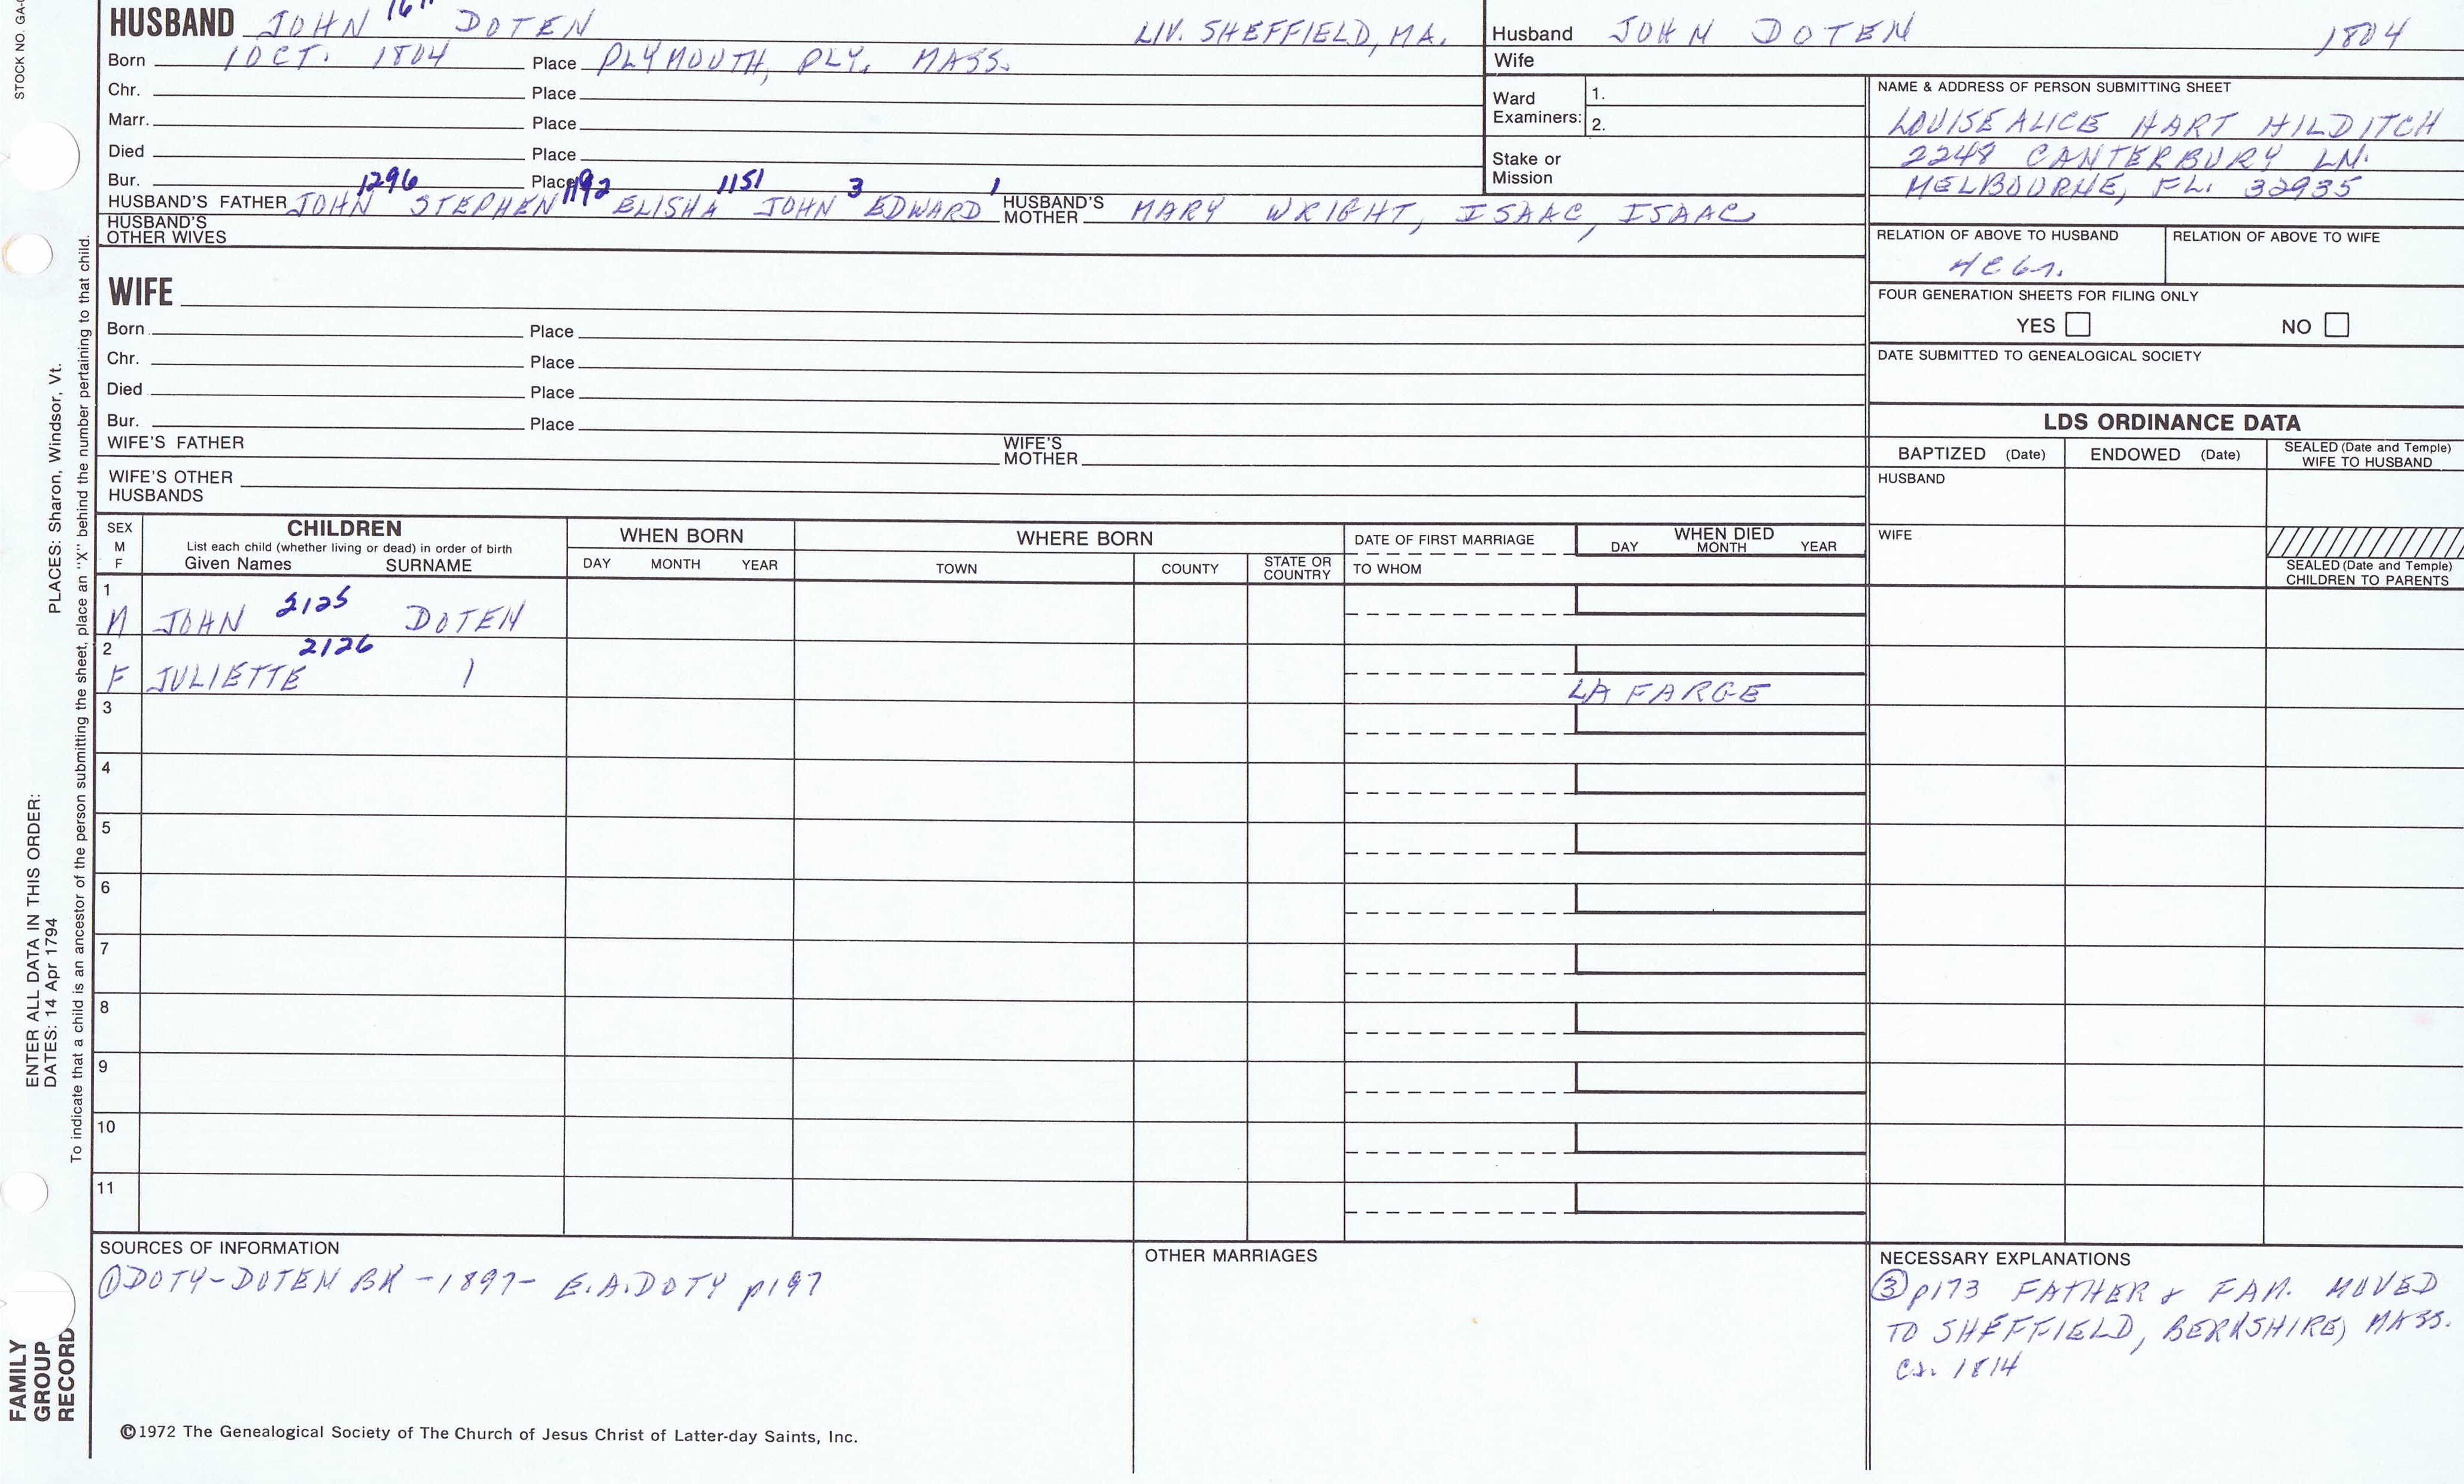 HUSBAND JOHN DOTEN LIV. SHEFFIELD, MA.
Born 1 OCT. 1804 Place PLYMOUTH, PLY. MASS.
Chr. Place
Marr. Place
Died Place
Bur. Place
1296 1192 1151 3 1
HUSBAND'S FATHER JOHN STEPHEN ELISHA JOHN EDWARD HUSBAND'S MOTHER MARY WRIGHT, ISAAC, ISAAC
HUSBAND'S OTHER WIVES
Husband JOHN DOTEN 1804
Wife
Ward Examiners: 1.
2.
Stake or Mission
NAME & ADDRESS OF PERSON SUBMITTING SHEET
LOUISE ALICE HART HILDITCH
2248 CANTERBURY LN.
MELBOURNE, FL. 32935
RELATION OF ABOVE TO HUSBAND RELATION OF ABOVE TO WIFE
FOUR GENERATION SHEETS FOR FILING ONLY
YES NO
DATE SUBMITTED TO GENEALOGICAL SOCIETY
WIFE
Born Place
Chr. Place
Died Place
Bur. Place
WIFE'S FATHER WIFE'S MOTHER
WIFE'S OTHER HUSBANDS
LDS ORDINANCE DATA
BAPTIZED (Date) ENDOWED (Date) SEALED (Date and Temple) WIFE TO HUSBAND
HUSBAND
WIFE
SEALED (Date and Temple) CHILDREN TO PARENTS
SEX M F
CHILDREN
List each child (whether living or dead) in order of birth
Given Names SURNAME
WHEN BORN
DAY MONTH YEAR
WHERE BORN
TOWN COUNTY STATE OR COUNTRY
DATE OF FIRST MARRIAGE
TO WHOM
WHEN DIED
DAY MONTH YEAR
1
M JOHN 2125 DOTEN
2 2126
F JULIETTE
LA FARGE
3
4
5
6
7
8
9
10
11
SOURCES OF INFORMATION
① DOTY-DOTEN BK -1897- E.A. DOTY p197
OTHER MARRIAGES
NECESSARY EXPLANATIONS
③ p173 FATHER & FAM. MOVED
TO SHEFFIELD, BERKSHIRE, MASS.
ca. 1814
©1972 The Genealogical Society of The Church of Jesus Christ of Latter-day Saints, Inc.
STOCK NO.
PLACES: Sharon, Windsor, Vt.
ENTER ALL DATA IN THIS ORDER:
DATES: 14 Apr 1794
To indicate that a child is an ancestor of the person submitting the sheet, place an "X" behind the number pertaining to that child.
FAMILY
GROUP
RECORD